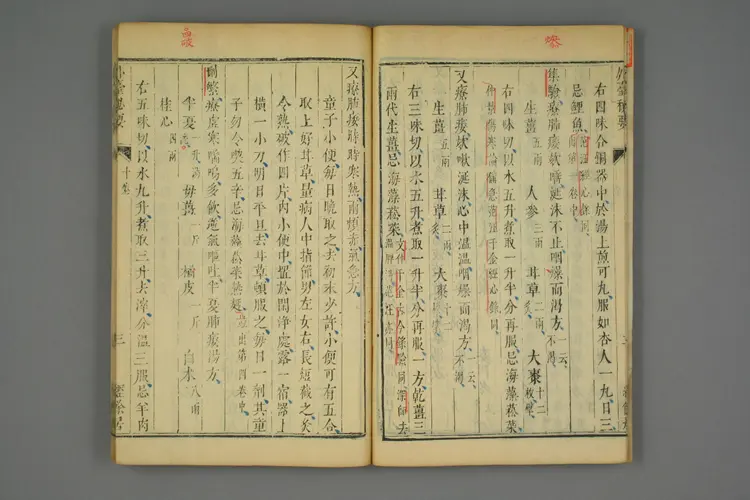 右四味合銅器中於湯上煎可丸服如杏人一丸日三
忌鯉魚
集驗療肺痿欬嗽涎沫不止咽燥而渴方一云不渴
生薑五兩 人參三兩 甘草二兩炙 大棗十二枚擘
右四味切以水五升煮取一升半分再服忌海藻菘菜
又療肺痿欬嗽涎沫心中溫溫咽燥而渴方一云不渴
生薑五兩 甘草二兩炙 大棗
右三味切以水五升煮取一升半分再服一方乾薑三
兩代生薑忌海藻菘菜
又療肺痿時時寒熱兩頰赤氣急方
童子小便每日晚取之去初末少許小便可有五合
取上好甘草量病人中指節男左女右長短截之炙
令熟破作四片內小便中置於閑淨處露一宿器上
橫一小刀明日平旦去甘草頓服之每日一劑其童
子勿令喫五辛忌海藻菘菜熱麵出第四卷中
刪繁療虛寒喘鳴多飲逆氣嘔吐半夏肺痿湯方
半夏一升 母薑一斤 橘皮一斤 白朮八兩
桂心四兩
右五味切以水九升煮取三升去滓分溫三服忌羊肉
外臺秘要
十卷
三
經餘居